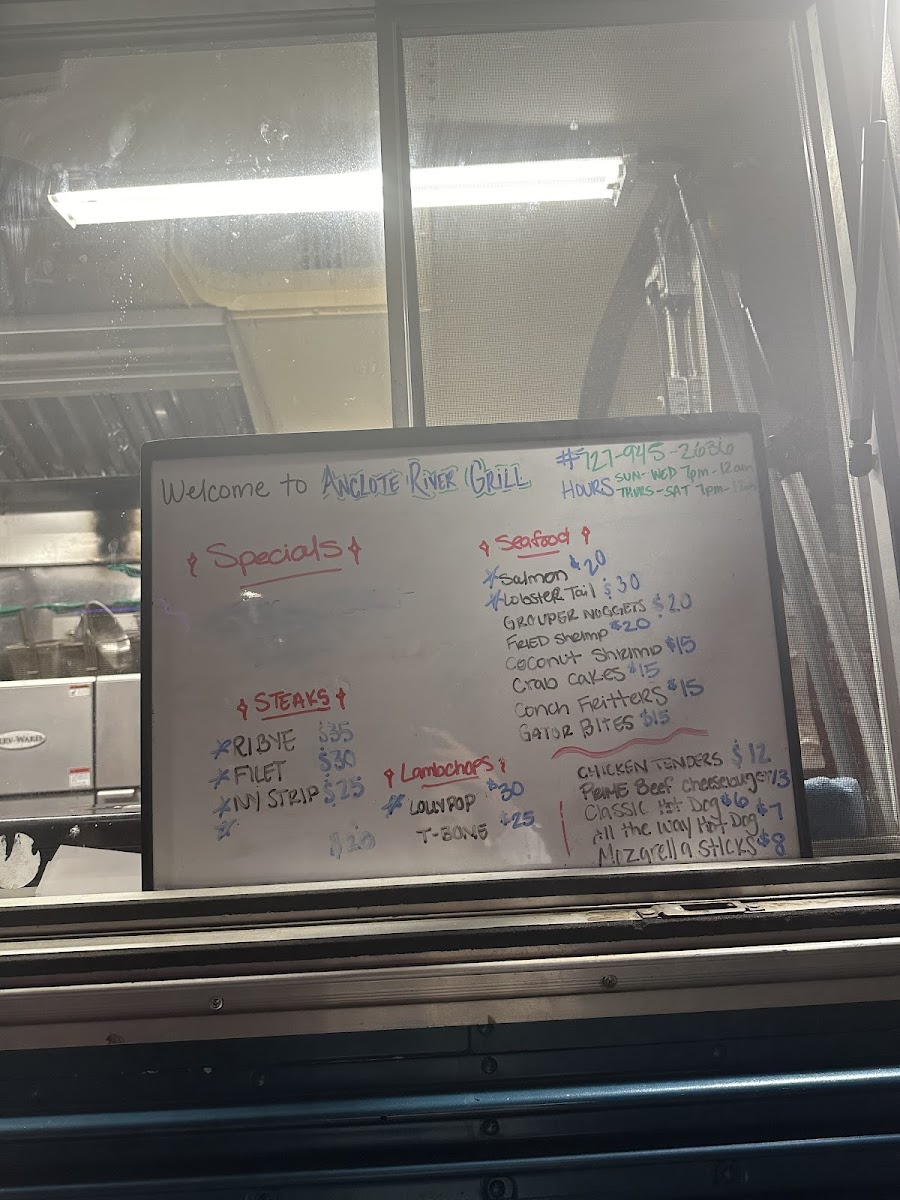 Welcome to ANCLOTE RIVER GRILL
#727-945-2636
HOURS SUN-WED 7pm-12am
THURS-SAT 7pm-
Specials
STEAKS
*RIBYE $35
*FILET $30
*NY STRIP $25
* $20
Lambchops
* LOLLYPOP $30
T-BONE $25
Seafood
*Salmon $20
*LOBSTER Tail $30
GROUPER NUGGETS $20
FRIED Shrimp $20
COCONUT SHRIMP $15
Crab CAKES $15
Conch FRITTERS $15
GATOR BITES $15
CHICKEN TENDERS $12
PRIME Beef cheeseburger $13
Classic Hot Dog $6
All the way Hot Dog $7
Mozarella Sticks $8